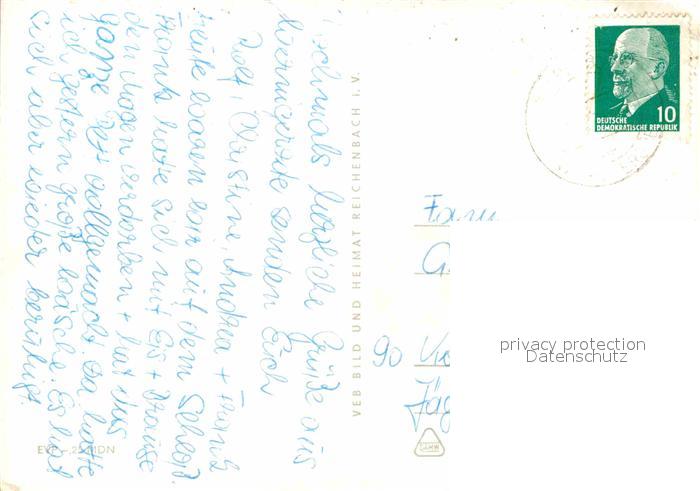 Nochmals herzliche Grüße aus
Wernigerode senden Euch
Rolf, Christine, Andrea + Frank
Heute waren wir auf dem Schloß.
Frank hatte sich mit Eis + Brause
den Magen verdorben + hat das
ganze Bett vollgemacht. Da hatte
ich gestern große Wäsche. Es hat
sich aber wieder beruhigt.
VEB BILD UND HEIMAT REICHENBACH I. V.
10
DEUTSCHE
DEMOKRATISCHE REPUBLIK
Fam
G
90
Jäg
privacy protection
Datenschutz
MDN